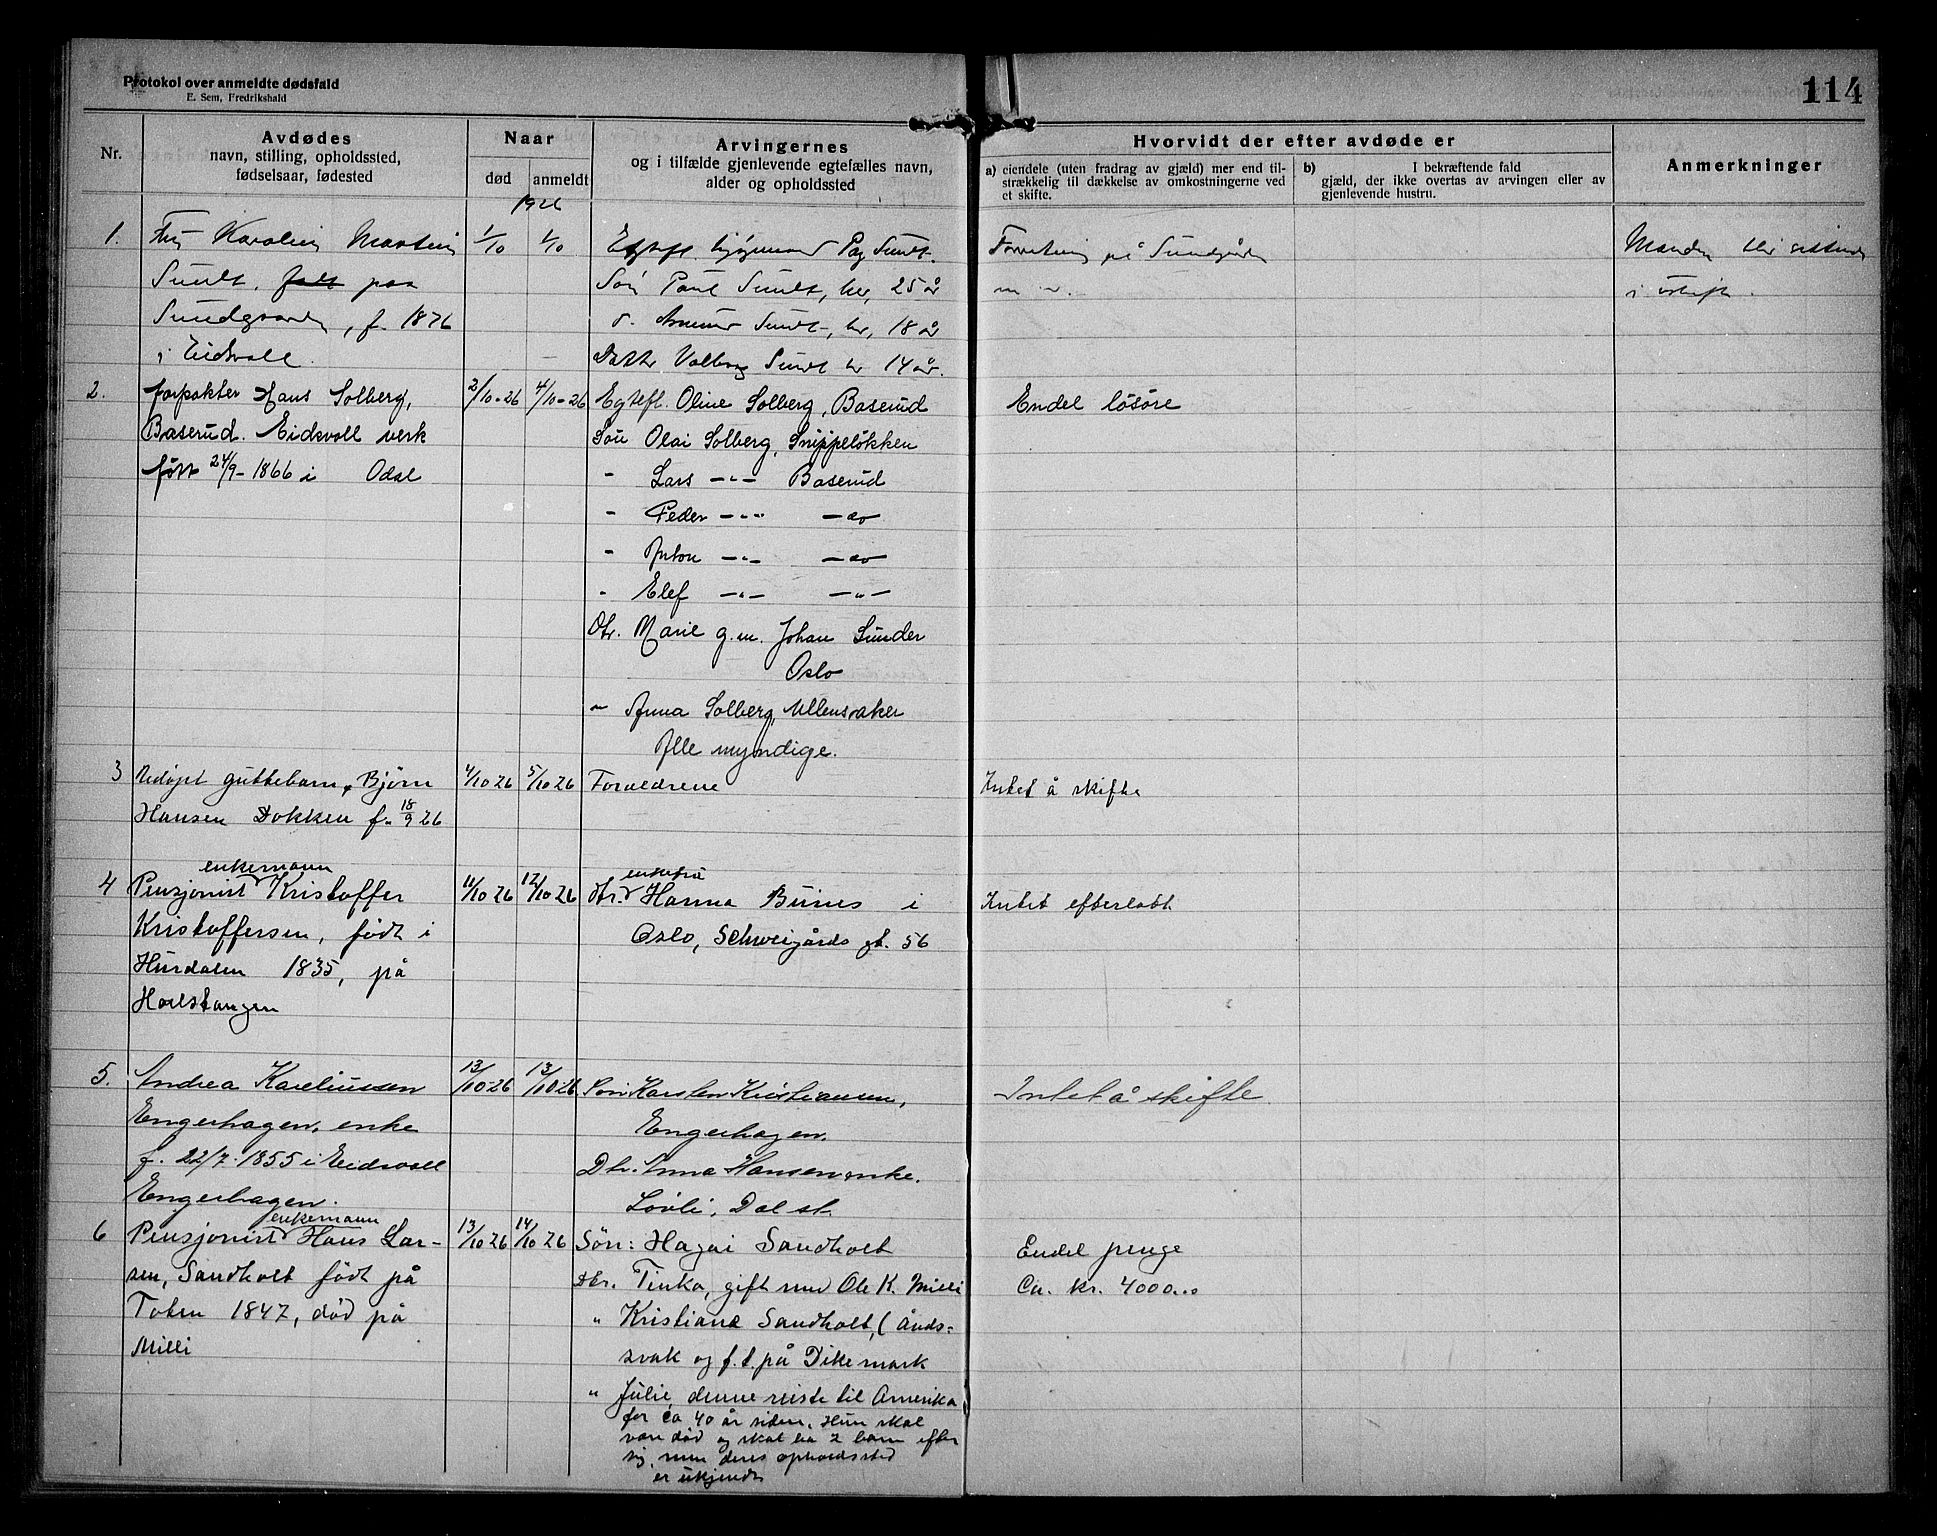 Protokol over anmeldte dødsfald
E. Sem, Fredrikshald
114
Nr.
Avdødes
navn, stilling, opholdssted,
fødselsaar, fødested
Naar
død
anmeldt
Arvingernes
og i tilfælde gjenlevende egtefælles navn,
alder og opholdssted
Hvorvidt der efter avdøde er
a) eiendele (uten fradrag av gjæld) mer end til-
strækkelig til dækkelse av omkostningerne ved
et skifte.
b) I bekræftende fald
gjæld, der ikke overtas av arvingen eller av
gjenlevende hustru.
Anmerkninger
1926
1.
Karolin Martin
Sundt, paa
Sundgaarden, f. 1876
i Eidsvoll.
1/10
1/10
Sundt.
Søn Paul Sundt, her, 25 år
Sundt, her, 18 år
Datter Valborg Sundt her 14 år.
Forretning på Sundgården
Manden blir sittende
i uskifte.
2.
forpakter Hans Solberg,
Baserud. Eidsvoll verk
født 24/9-1866 i Odal
2/10-26
4/10-26
Egtefl. Oline Solberg, Baserud
Søn Olai Solberg, Snippeløkken
" Lars —"— Baserud
" Peder —"— —"—
" Anton —"— —"—
" Elef —"— —"—
Dtr. Marie g.m. Johan Sunder
Oslo
" Anna Solberg, Ullensaker
Alle myndige.
Endel løsøre
3
Udøpt guttebarn, Bjørn
Hansen Dokken f. 18/9 26
4/10 26
5/10 26
Foreldrene
Intet å skifte
4
enkemann
Pensjonist Kristoffer
Kristoffersen, født i
Hurdalen 1835, på
Holstangen
11/10 26
12/10 26
enkefru
Dtr. Hanna Bunes i
Oslo, Schweigårds gt. 56
Intet efterlatt
5.
Andrea Kareliussen
Engerhagen, enke
f. 22/7-1855 i Eidsvoll
Engerhagen.
13/10-26
13/10-26
Søn Karsten Kristiansen,
Engerhagen.
Dtr. Anna Hansen enke.
Løvli, Dal st.
Intet å skifte
6
enkemann
Pensjonist Hans Lar-
sen, Sandholt født på
Toten 1847, død på
Milli
13/10 26
14/10 26
Søn: Hagai Sandholt
Dtr. Tinka, gift med Ole K. Milli
" Kristiane Sandholt, (ånds-
svak og f.t. på Dikemark
" Julie, denne reiste til Amerika
for ca 40 år siden. Hun skal
være død og skal ha 2 barn efter
sig, men deres opholdssted
er ukjendt
Endel penge
Ca. kr. 4000..